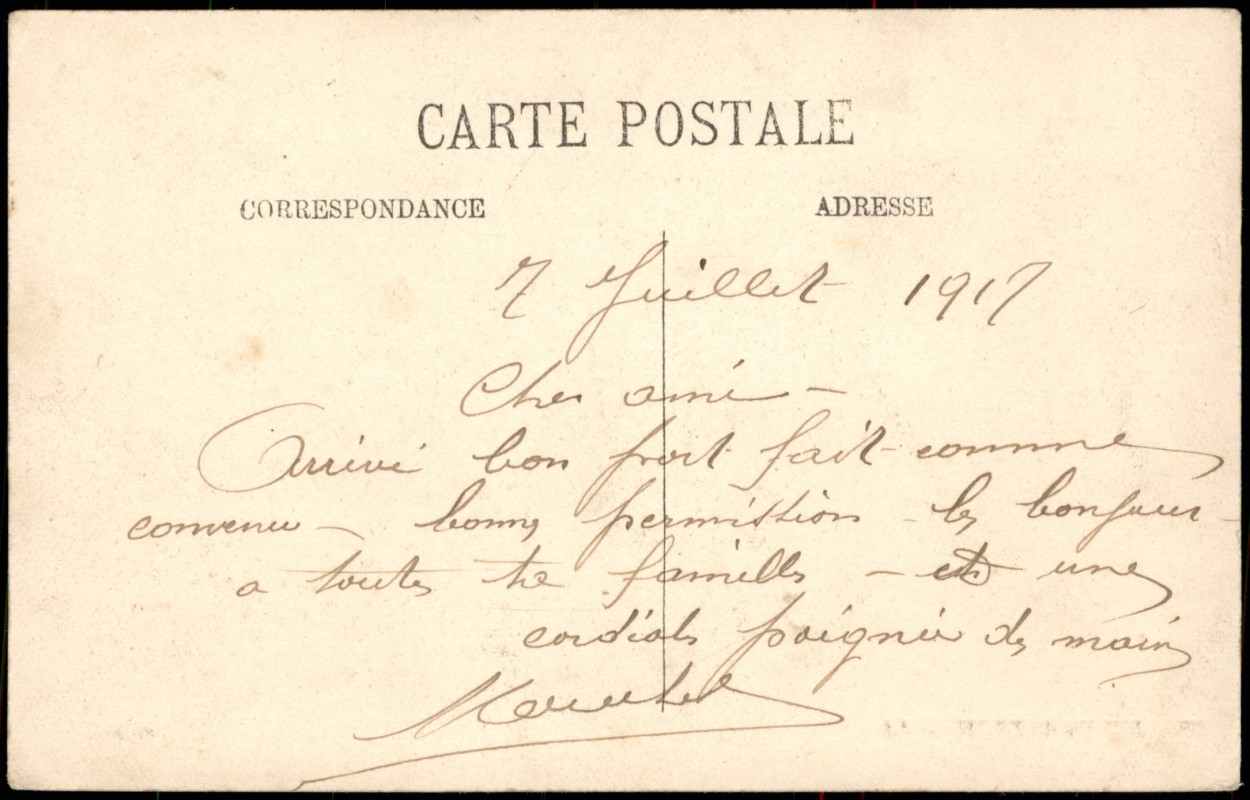 CARTE POSTALE
CORRESPONDANCE
ADRESSE
7 Juillet 1917
Cher ami –
Arrivé bon port fait comme
convenu – bonne permission – le bonjour
a toute ta famille – et une
cordiale poignée de main